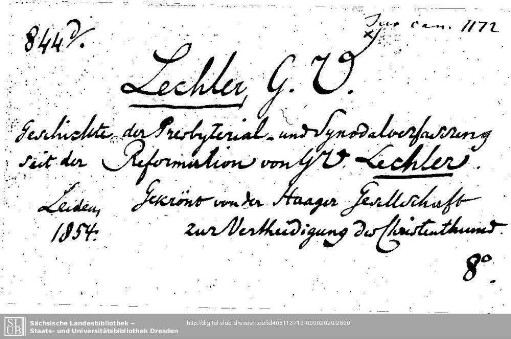 844 D/.
Jus can. 1172
Lechler, G. V.
Geschichte der Presbyterial- und Synodalverfassung
seit der Reformation von GV Lechler.
Gekrönt von der Haager Gesellschaft
Leiden,
1854.
zur Vertheidigung des Christenthums
8º.
SLUB
Sächsische Landesbibliothek –
Staats- und Universitätsbibliothek Dresden